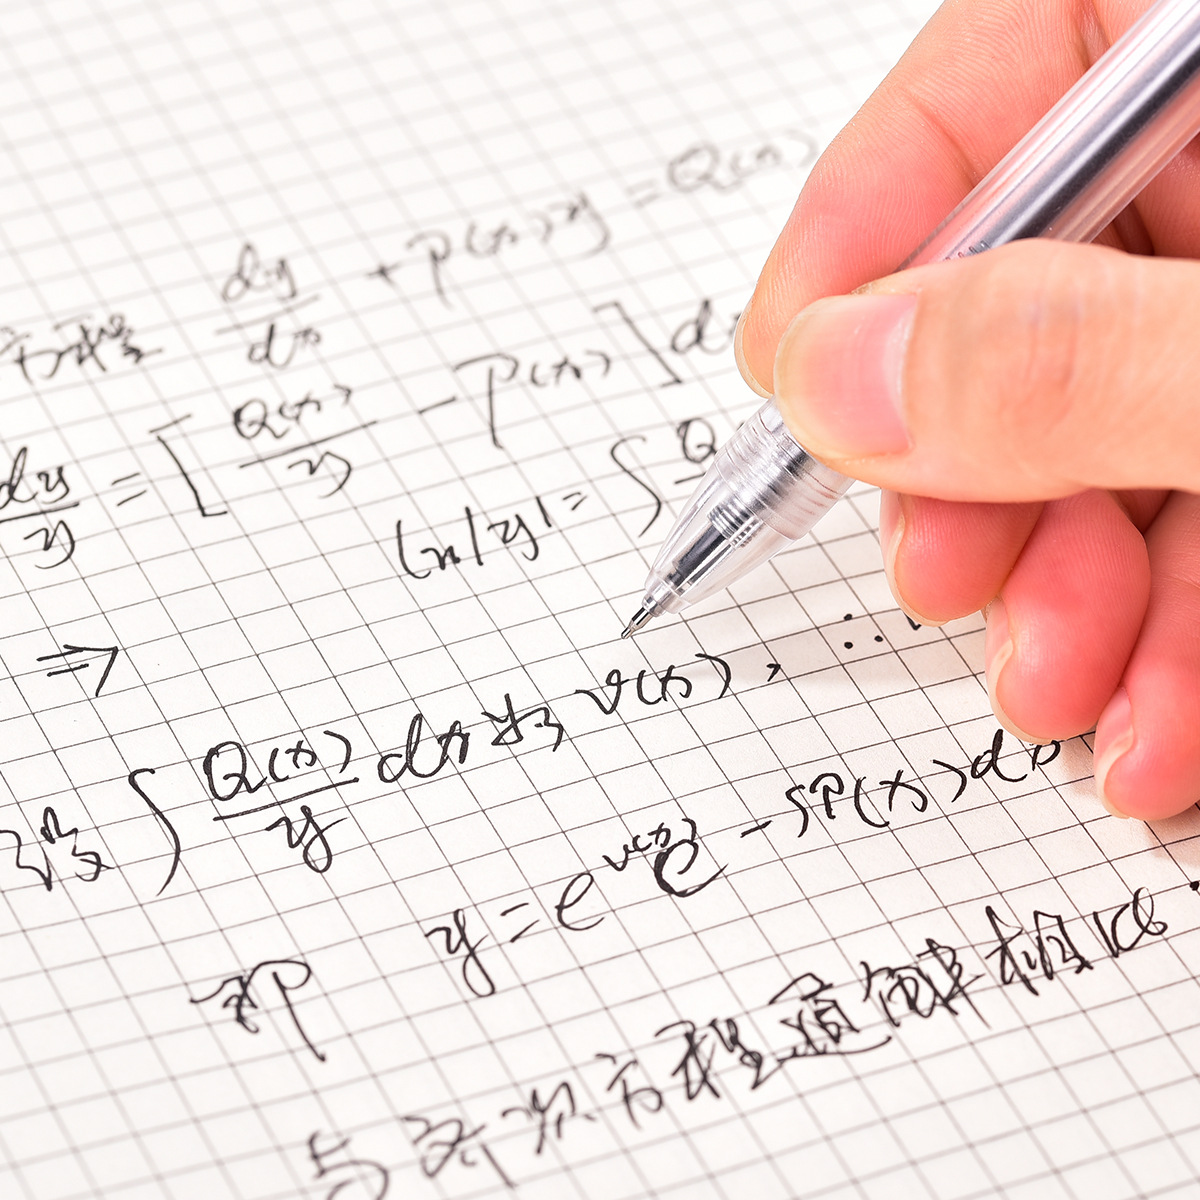 方程 dy/dx + P(x)y = Q(x)
dy/y = [Q(x)/y - P(x)]d
ln|y| = ∫ Q
⇒
设 ∫ Q(x)/y dx为 v(x), ∴
即 y = e^v(x) e - ∫P(x)dx
与齐次方程通解相比